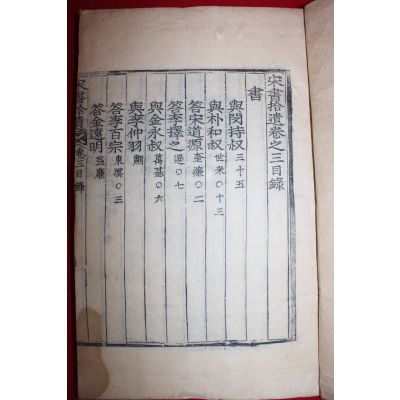 宋書拾遺卷之三目錄
書
與閔持叔 三十五
與朴和叔 世采○十三
答宋道源 奎濂○二
答李擇之 選○七
與金永叔 萬基○六
與李仲羽 翽
答李百宗 東溟○三
答金遠明 益廉
宋書拾遺 卷三目錄